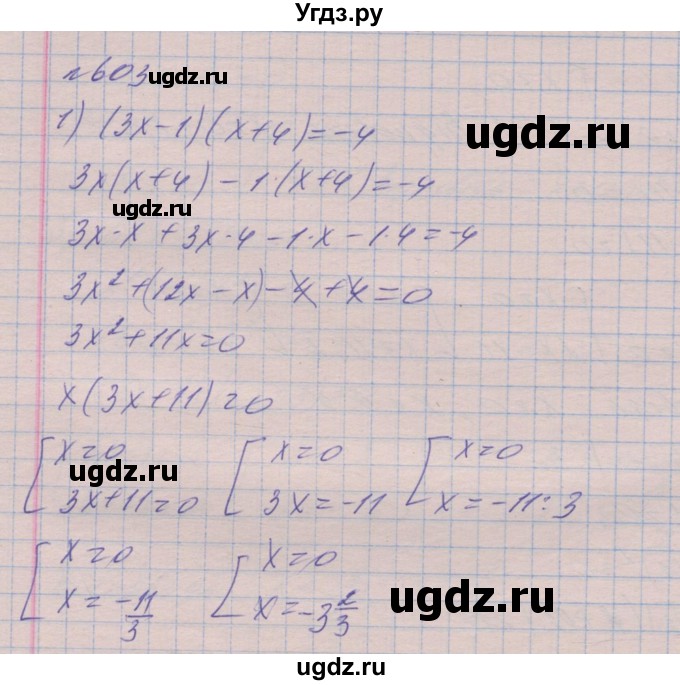 Угдз.ру
№603
ugdz.ru
1) (3x-1)(x+4)=-4
ugdz.ru
3x(x+4)-1·(x+4)=-4
ugdz.ru
3x·x+3x·4-1·x-1·4=-4
3x²+(12x-x)-4+4=0
3x²+11x=0
x(3x+11)=0
[x=0 [x=0 [x=0
ugdz.ru
3x+11=0 3x=-11 x=-11:3
[x=0 [x=0
x=-11/3 x=-3 2/3
ugdz.ru
ugdz.ru